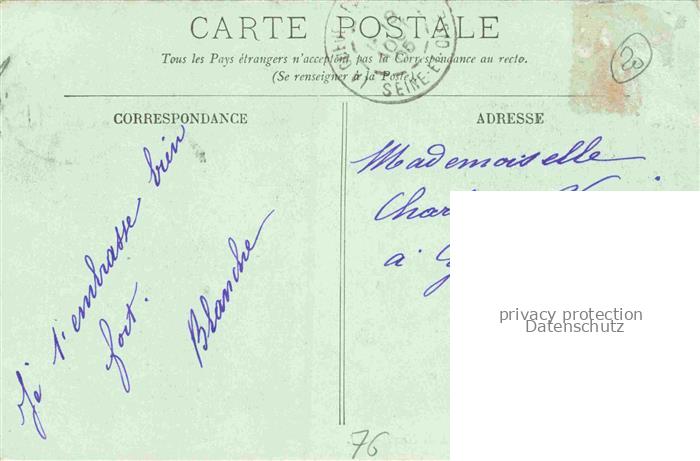 CARTE POSTALE
Tous les Pays étrangers n'acceptent pas la Correspondance au recto.
(Se renseigner à la Poste).
SEINE-ET-OISE
20
CORRESPONDANCE
ADRESSE
Je t'embrasse bien
fort.
Blanche
Mademoiselle
à
privacy protection
Datenschutz
76